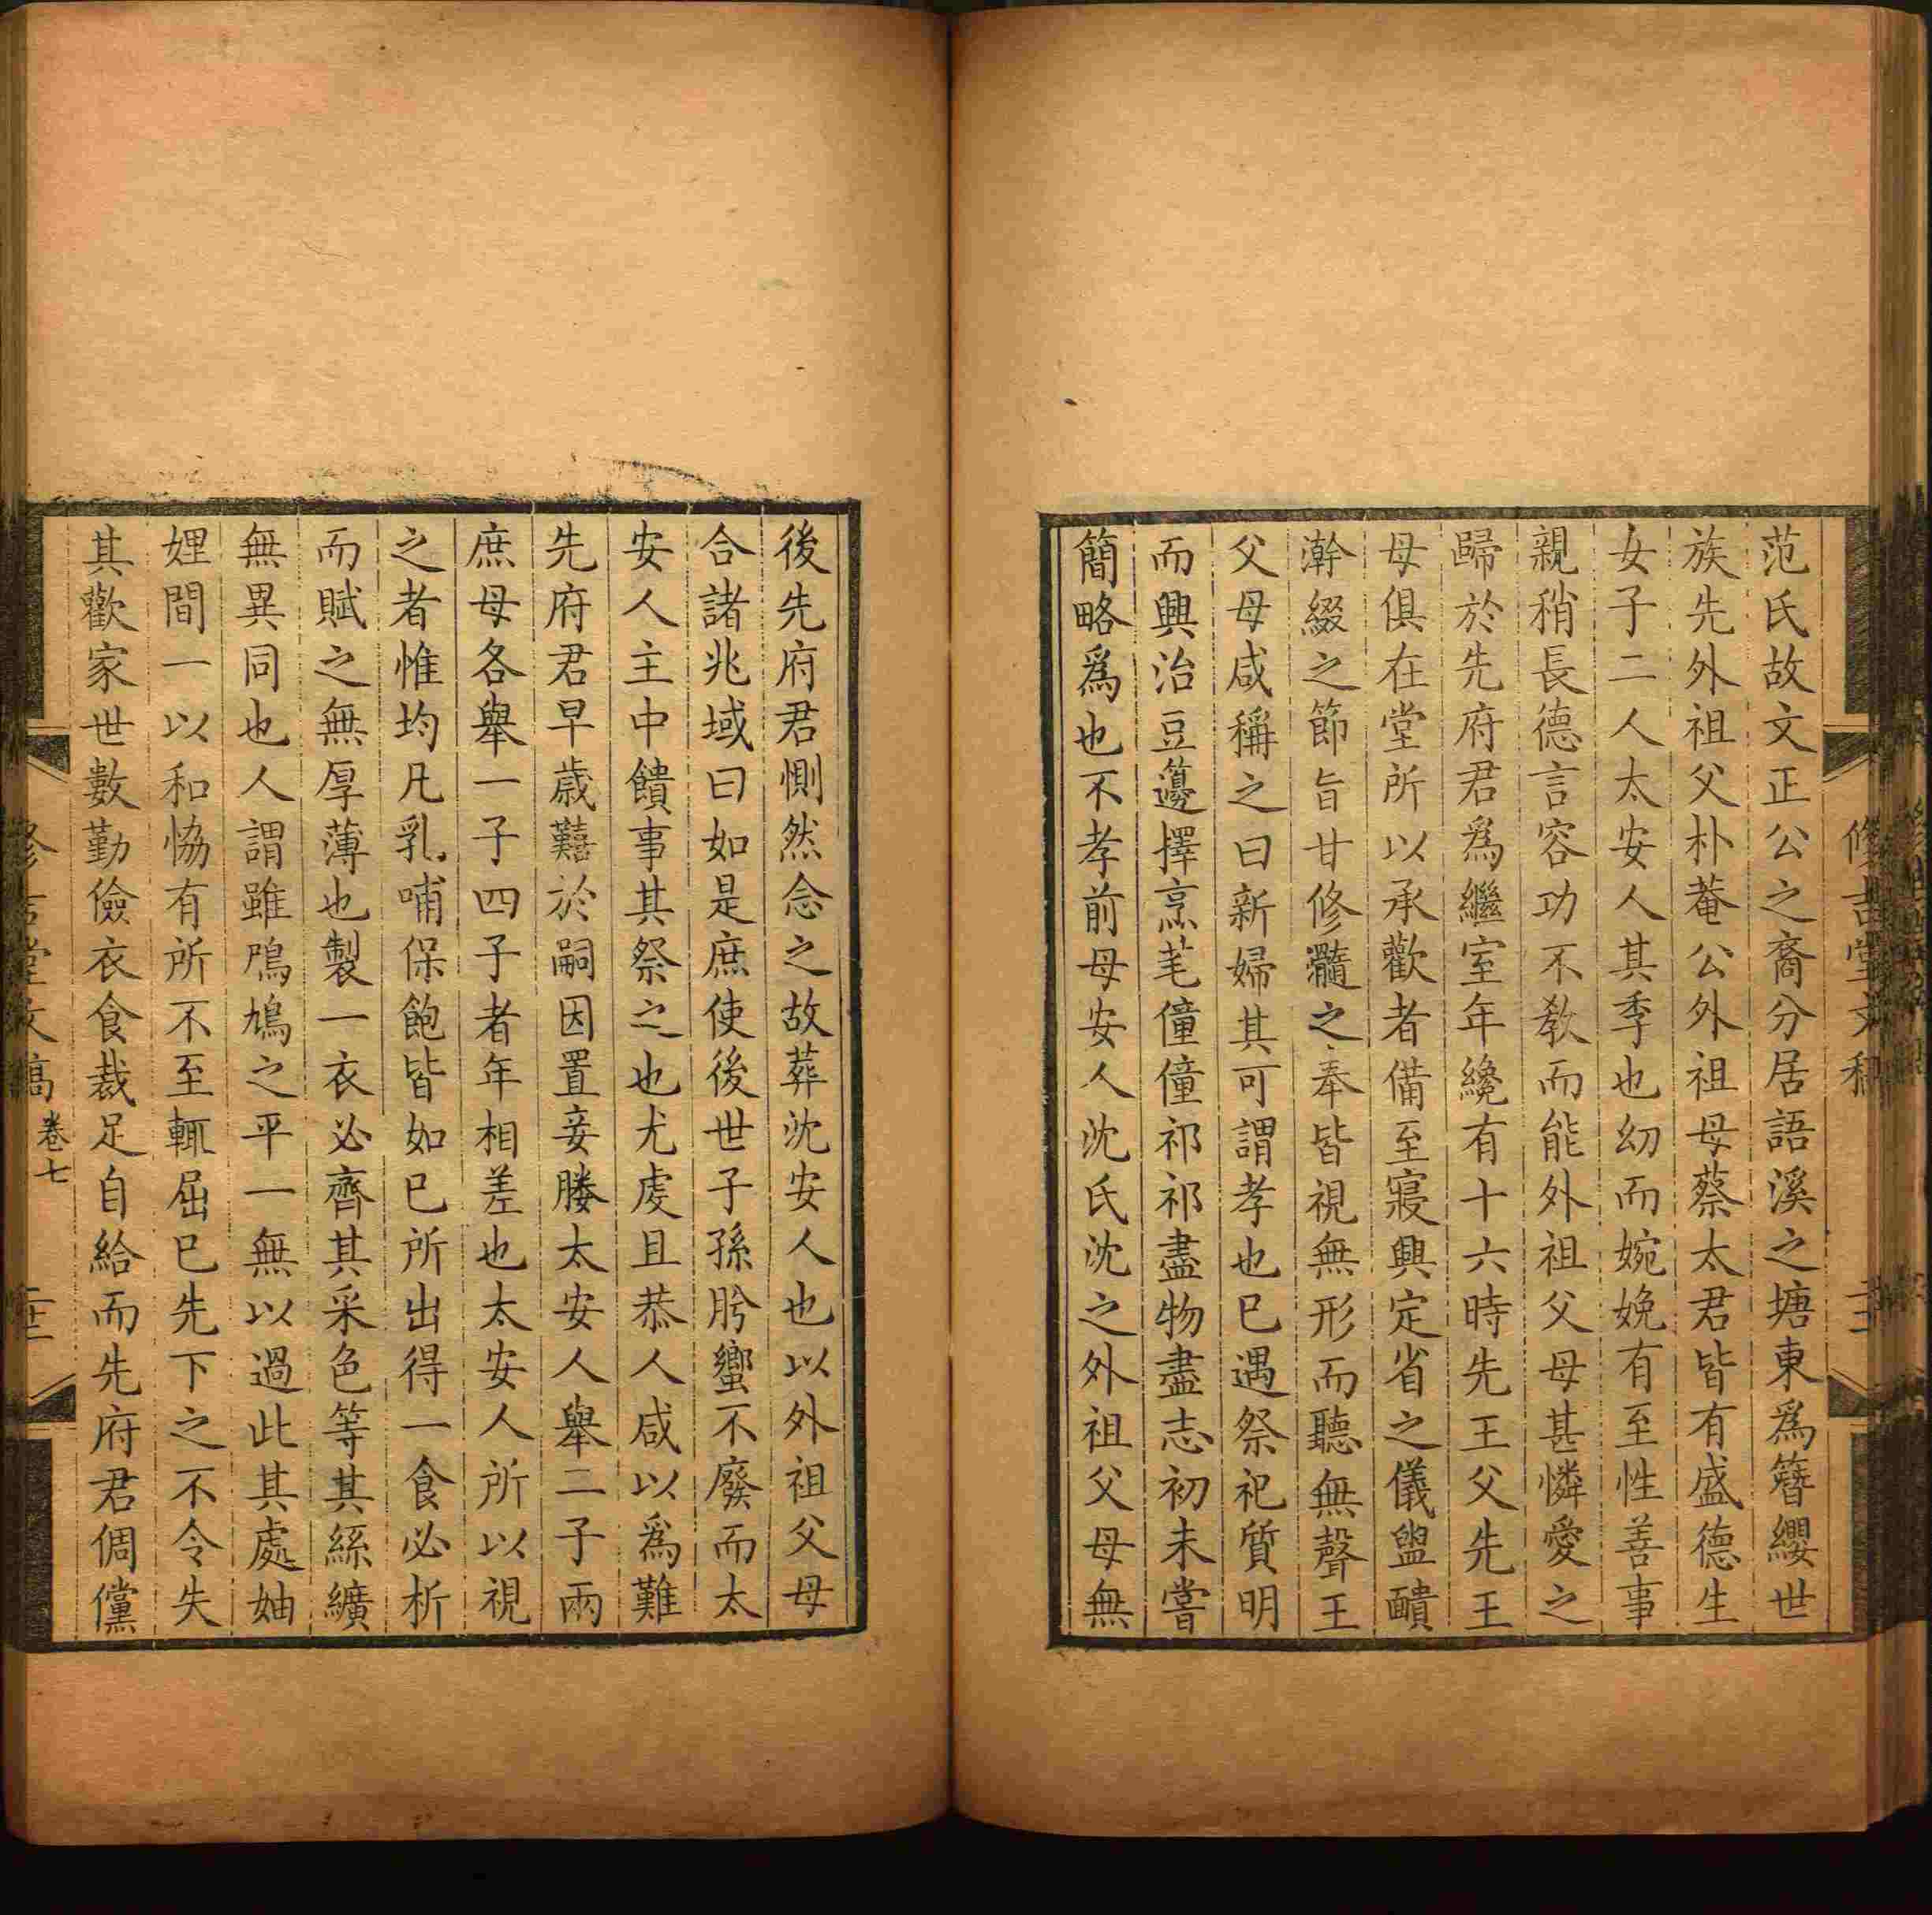 范氏故文正公之裔分居語溪之塘東爲簪纓世
族先外祖父朴菴公外祖母蔡太君皆有盛德生
女子二人太安人其季也幼而婉娩有至性善事
親稍長德言容功不敎而能外祖父母甚憐愛之
歸於先府君爲繼室年纔有十六時先王父先王
母俱在堂所以承歡者備至寢興定省之儀盥靧
澣綴之節旨甘修瀡之奉皆視無形而聽無聲王
父母咸稱之曰新婦其可謂孝也已遇祭祀質明
而興治豆籩擇烹芼僮僮祁祁盡物盡志初未嘗
簡略爲也不孝前母安人沈氏沈之外祖父母無
後先府君惻然念之故葬沈安人也以外祖父母
合諸兆域曰如是庶使後世子孫肸蠁不廢而太
安人主中饋事其祭之也尤虔且恭人咸以爲難
先府君早歲囏於嗣因置妾媵太安人舉二子兩
庶母各舉一子四子者年相差也太安人所以視
之者惟均凡乳哺保飽皆如已所出得一食必析
而賦之無厚薄也製一衣必齊其采色等其絲纊
無異同也人謂雖鳲鳩之平一無以過此其處妯
娌間一以和恊有所不至輒屈已先下之不令失
其歡家世數勤儉衣食裁足自給而先府君倜儻
修吉堂文稿 卷七